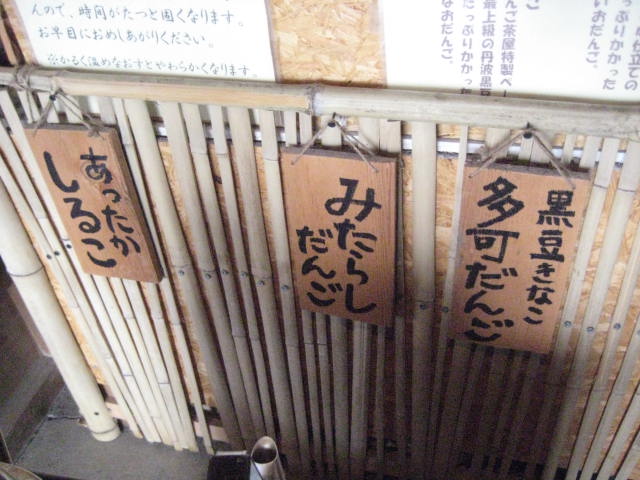 んので、時間がたつと固くなります。
お早目におめしあがりください。
※かるく温めなおすとやわらかくなります。
んご茶屋特製ペ
最上級の丹波黒豆
たっぷりかかった
なおだんご。
たっぷりかかった
いおだんご。
黒豆きなこ
多可だんご
みたらし
だんご
あったか
しるこ